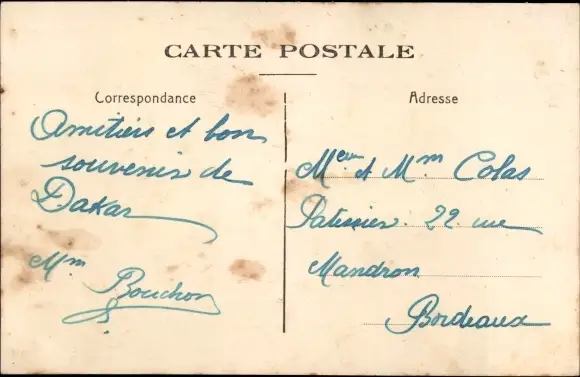 CARTE POSTALE
Correspondance
Amitiés et bon
souvenir de
Dakar
Mm
Bouchon
Adresse
Meur et Mm Colas
Patissier 22 rue
Mandron
Bordeaux